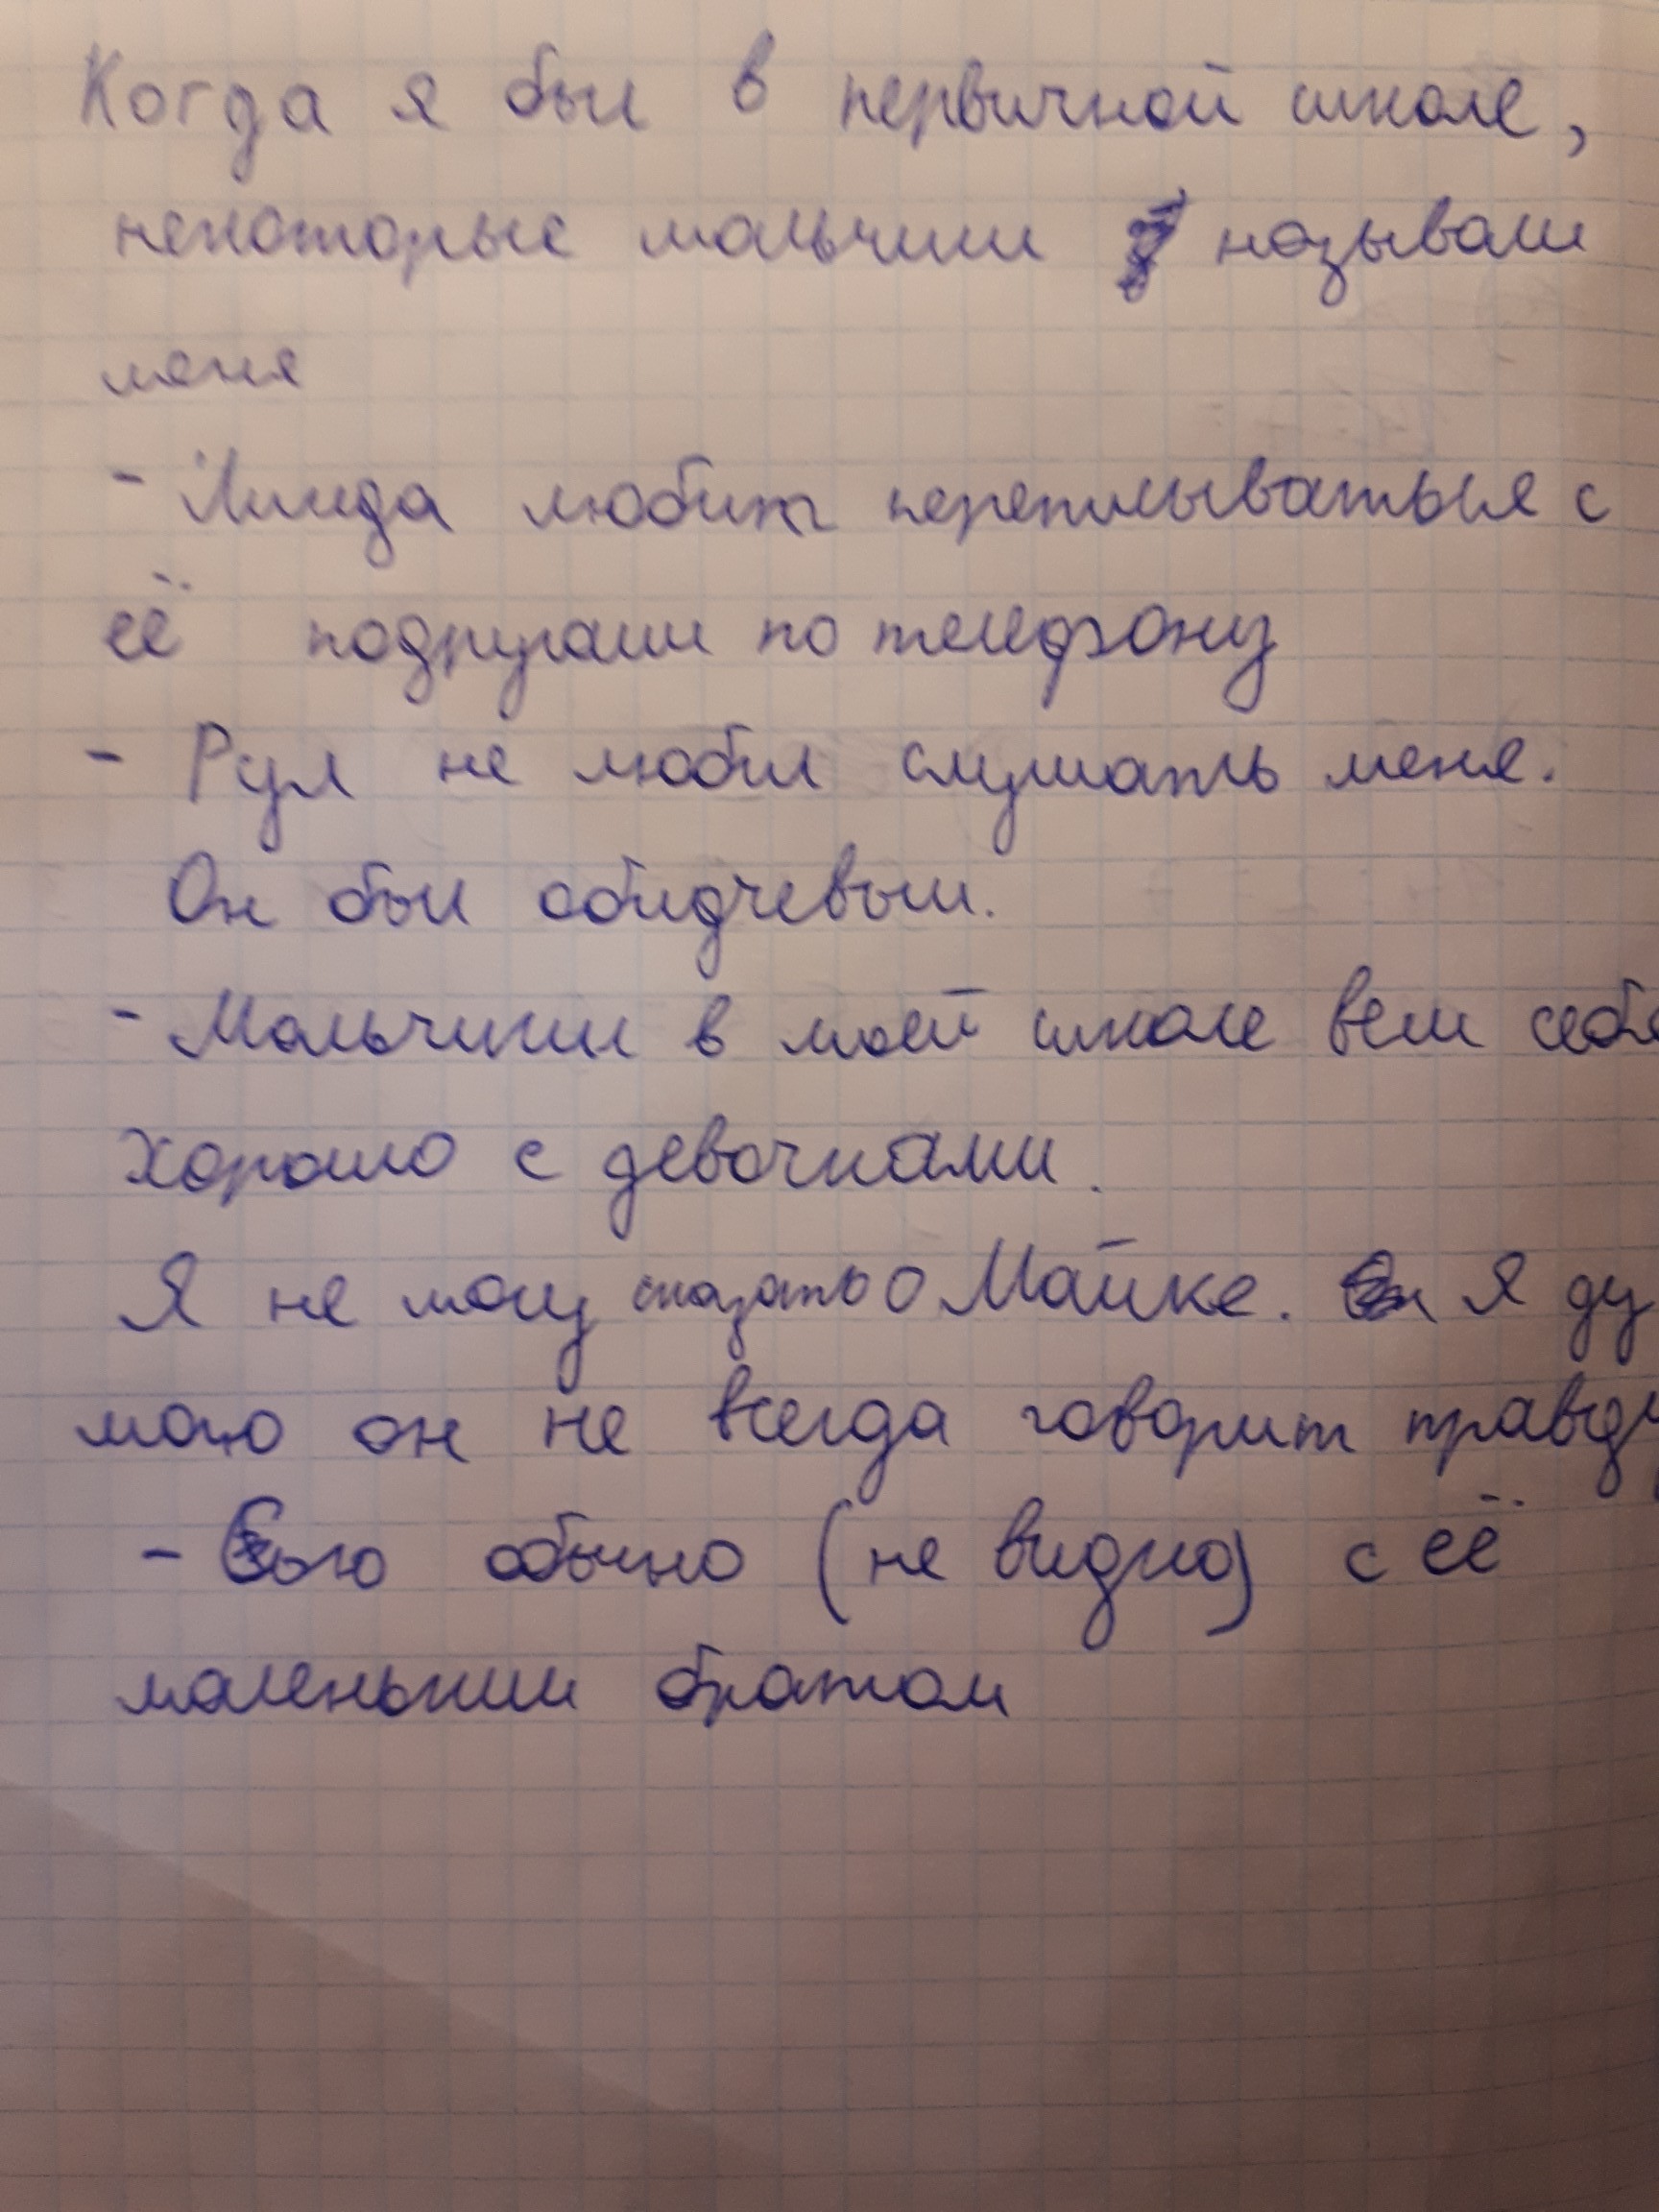 Когда я был в первичной школе,
некоторые мальчики называли
меня
- Линда любит переписываться с
её подругами по телефону
- Рул не любил слушать меня.
Он был обидчевым.
- Мальчики в моей школе вели себя
хорошо с девочками.
Я не могу сказать о Майке. Я ду
маю он не всегда говорит правду
- Сью обычно (не видно) с её
маленьким братом